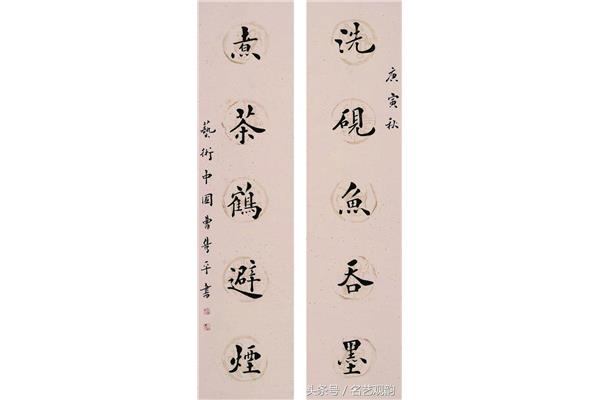 洗硯魚吞墨
庚寅秋
煮茶鶴避煙
藝術中国曹雋平書
头条号 / 名艺观韵